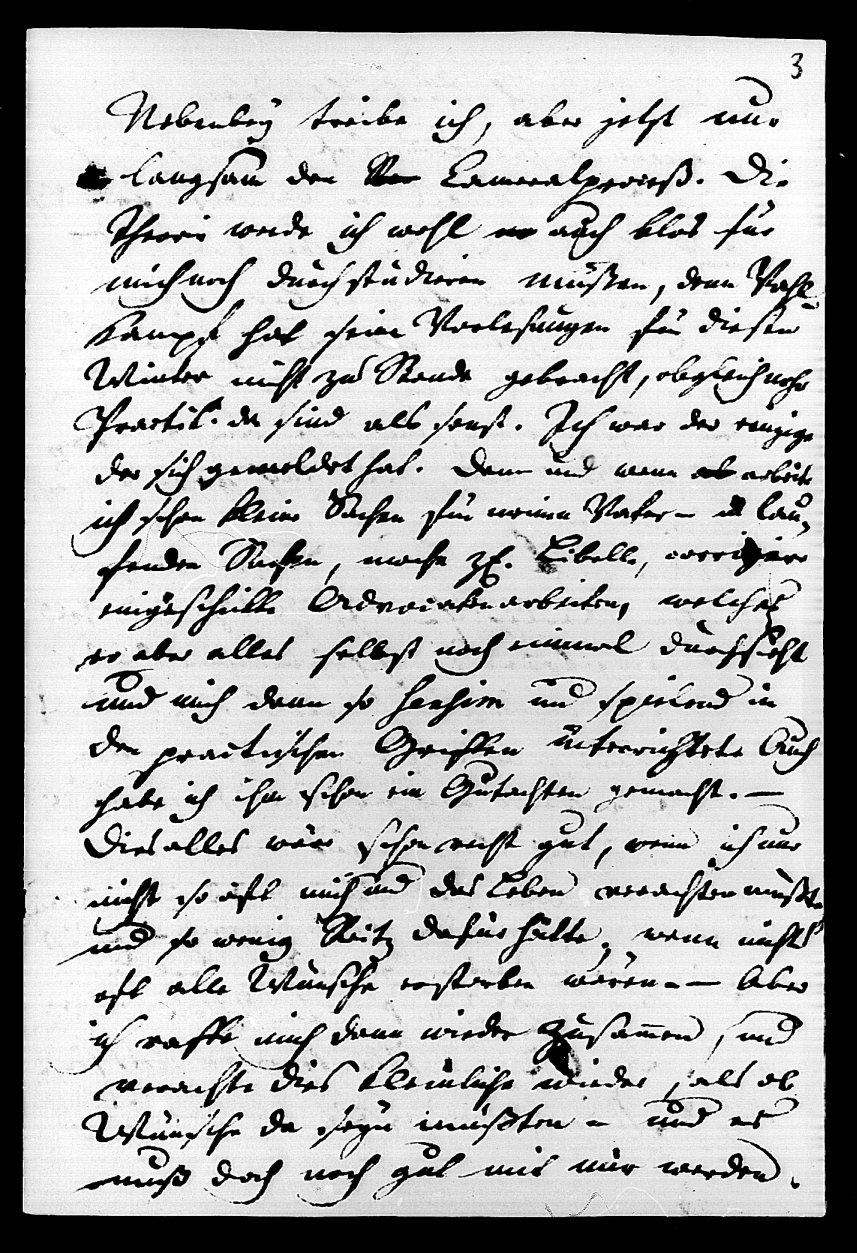 3
Nebenbey treibe ich, aber jetzt nur
langsam den Cameralproceß. Die
Theorie werde ich wohl auch blos für
mich noch durchstudieren müßen, denn Vahl-
kampf hat seine Vorlesungen für diesen
Winter nicht zu Stande gebracht, obgleich mehr
Practik. da sind als sonst. Ich war der einzige
der sich gemeldet hat. Dann und wann arbeite
ich schon kleine Sachen für meinen Vater – in lau-
fenden Sachen, mache zE. Libelle, corrigire
eingeschickte Advocatenarbeiten, welches
er aber alles selbst noch einmal durchsieht
und mich dann so hinhin und spielend in
den practischen Griffen unterrichtete Auch
habe ich ihm schon ein Gutachten gemacht. —
Dies alles wäre schon recht gut, wenn ich nur
nicht so oft mich und das Leben verachten müßte
und so wenig Reitz dafür hätte, wenn nicht
oft alle Wünsche erstorben wären. — Aber
ich raffe mich dann wieder zusammen, und
verachte dies kleinliche wieder, als ob
Wünsche da seyn müßten – und es
muß doch noch gut mit mir werden.